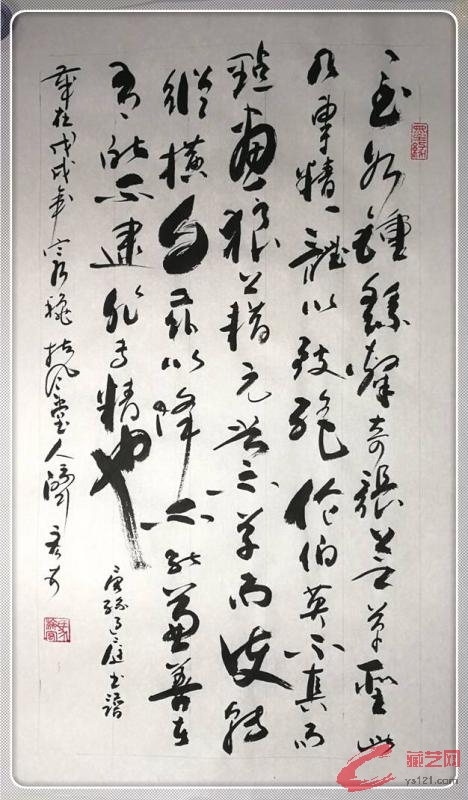 至若鍾繇隸奇張芝草聖此
乃專精一體以致絕倫伯英不真而
點畫狼藉元常不草而使轉
縱橫自茲以降不能兼善者
有所不逮非專精也
唐孫過庭書譜
歲在戊戌年
堂人濟
藏艺网
ys121.com